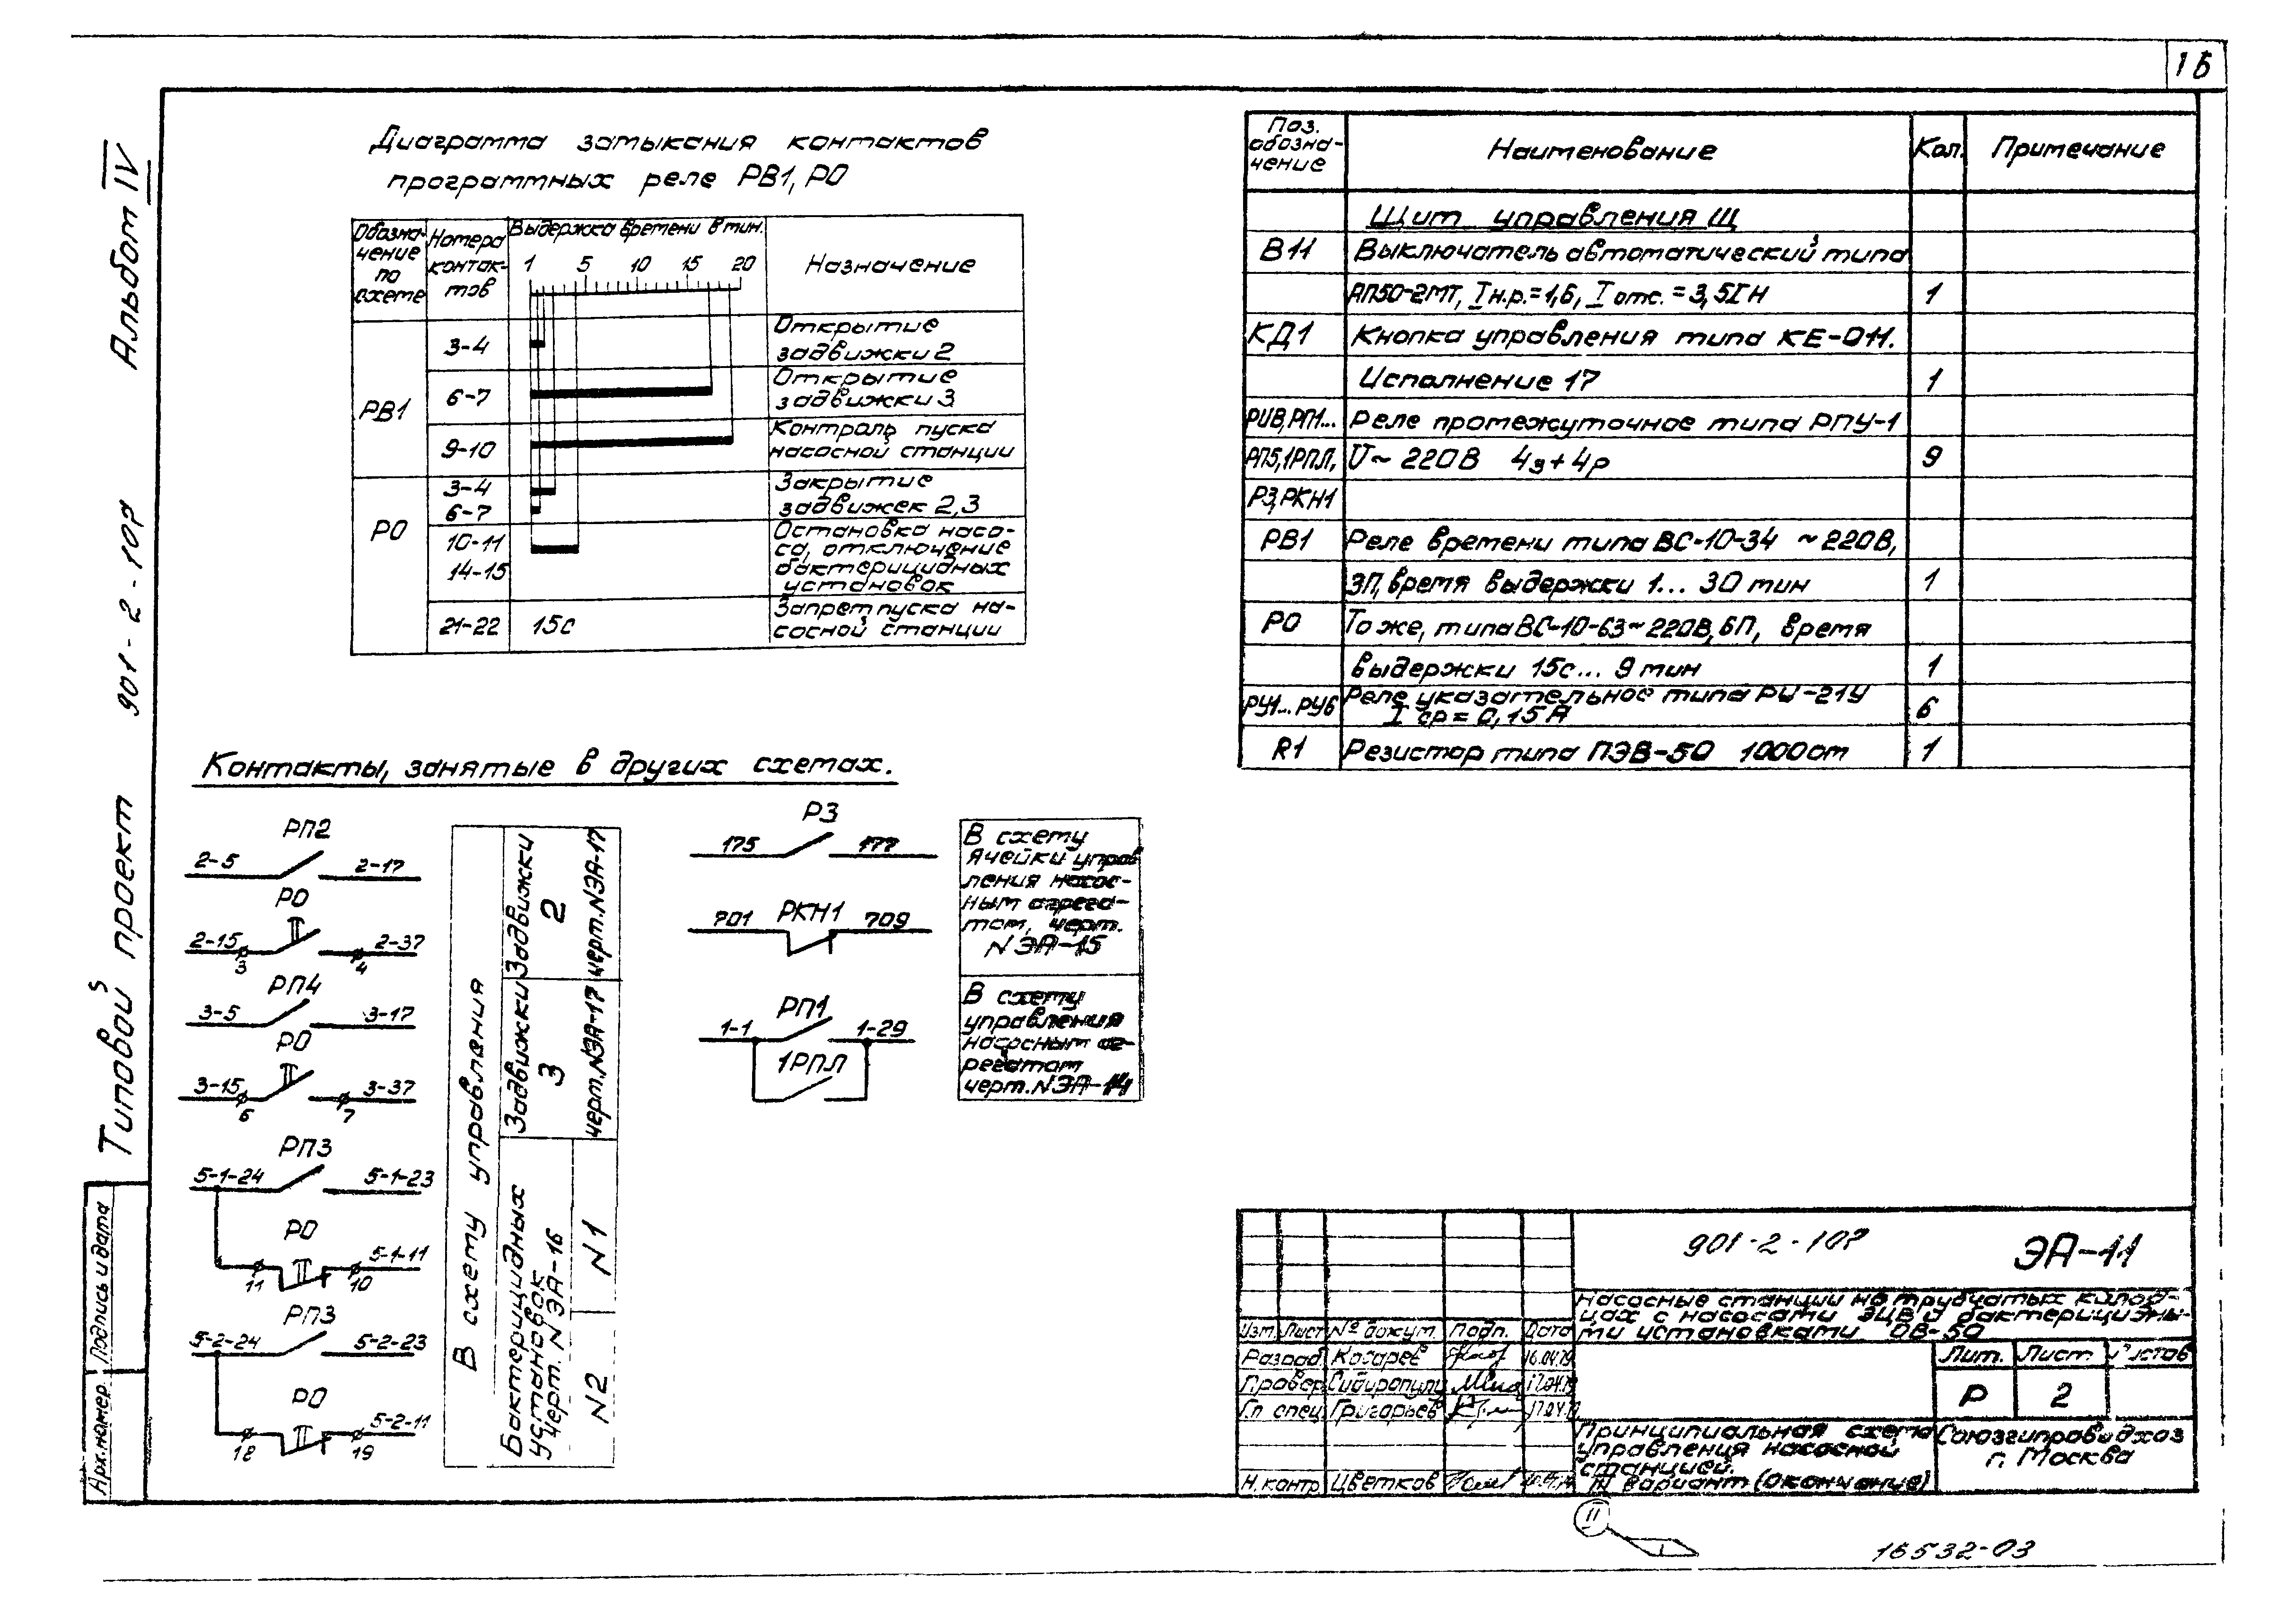 16
Альбом IV
Типовой проект 901-2-107
Подпись и дата
Арх.номер
Диаграмма замыкания контактов
программных реле РВ1, РО
Обозна-
чение
по
схеме
Номера
контак-
тов
Выдержка времени в мин.
1 5 10 15 20
Назначение
РВ1
3-4
Открытие
задвижки 2
6-7
Открытие
задвижки 3
9-10
Контроль пуска
насосной станции
РО
3-4
6-7
Закрытие
задвижек 2,3
10-11
14-15
Остановка насо-
са, отключение
бактерицидных
установок
21-22
15с
Запрет пуска на-
сосной станции
Поз.
обозна-
чение
Наименование
Кол.
Примечание
Щит управления Щ
В11 Выключатель автоматический типа
АП50-2МТ, Iн.р.=1,6, Iотс.=3,5Iн 1
КД1 Кнопка управления типа КЕ-011.
Исполнение 17 1
РИВ,РП1... Реле промежуточное типа РПУ-1
РП5,1РПЛ, U~ 220В 4з+4р 9
РЗ,РКН1
РВ1 Реле времени типа ВС-10-34 ~220В,
3П,время выдержки 1... 30 мин 1
РО То же, типа ВС-10-63~220В,6П, время
выдержки 15с... 9 мин 1
РУ1...РУ6 Реле указательное типа РУ-21У
Iср = 0,15А 6
R1 Резистор типа ПЭВ-50 1000ом 1
Контакты, занятые в других схемах.
РП2
2-5 2-17
РО
2-15 2-37
3 4
РП4
3-5 3-17
РО
3-15 3-37
6 7
РП3
5-1-24 5-1-23
РО
5-1-11
11 10
РП3
5-2-24 5-2-23
РО
5-2-11
18 19
В схему управления
Задвижки
2
черт.NЭА-17
Задвижки
3
черт.NЭА-17
Бактерицидных
установок
черт. N ЭА-16
N1
N2
РЗ
175 177
РКН1
701 709
РП1
1-1 1-29
1РПЛ
В схему
ячейки управ
ления насос-
ным агрега-
том, черт.
N ЭА-15
В схему
управления
насосным аг-
регатом
черт.N ЭА-14
901-2-107
ЭА-11
Насосные станции на трубчатых колод-
цах с насосами ЭЦВ и бактерицидны-
ми установками ОВ-50
Изм. Лист № докум. Подп. Дата
Разраб. Косарев 16.04.79
Провер. Сидиропулу 17.04.79
Гл. спец. Григорьев 17.04.79
Н. контр. Цветков
Лит. Лист. Листов
Р 2
Принципиальная схема
управления насосной
станцией.
III вариант (окончание)
Союзгипроводхоз
г. Москва
11
1
16532-03